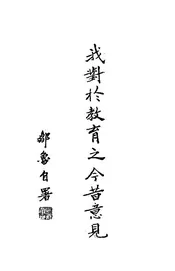 我對於教育之今昔意見
鄒魯自署